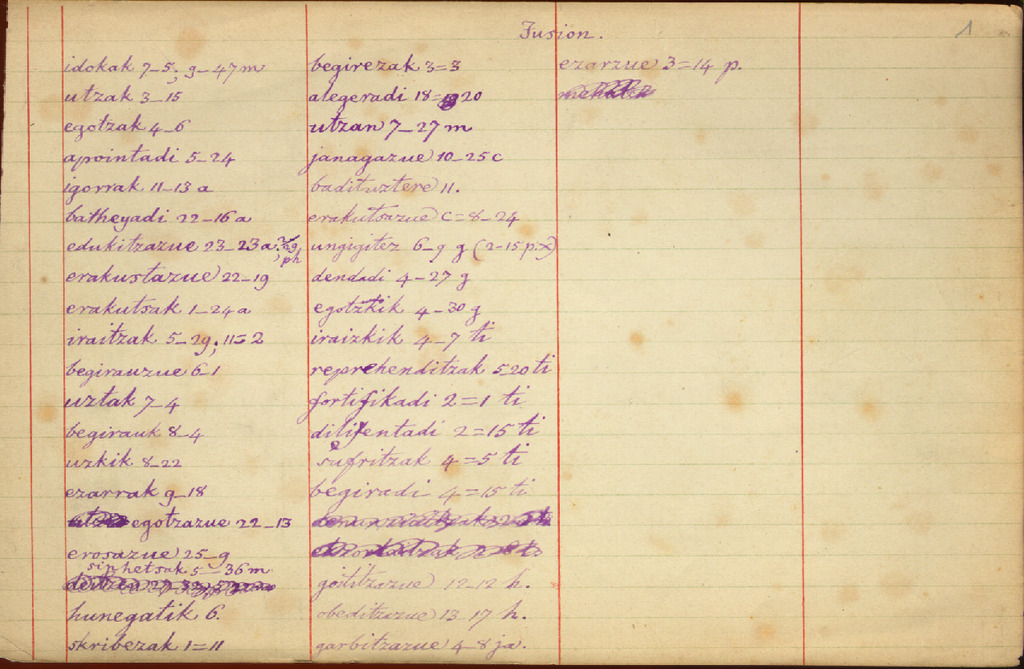 Fusion.
1
idokak 7_5; 9_47 m
utzak 3_15
egotzak 4_6
apointadi 5_24
igorrak 11_13 a
batheyadi 22_16 a
edukitzazue 23_23 a
; ph
erakustazue 22_19
erakutsak 1_24 a
iraitzak 5_29; 11=2
begirauzue 6_1
uztak 7_4
begirauk 8_4
uzkik 8_22
ezarrak 9_18
egotzazue 22_13
erosazue 25_9
sinhetsak 5_36 m
hunegatik 6.
skribezak 1=11
begirezak 3=3
alegeradi 18=20
utzan 7_27 m
janagazue 10_25 c
badituztere 11.
erakutsazue c=8_24
ungigitez 6_9 g (2-15 p.x)
dendadi 4_27 g
egotzkik 4_30 g
iraizkik 4_7 ti
reprehenditzak 5 20 ti
fortifikadi 2=1 ti
diligentadi 2=15 ti
sufritzak 4=5 ti
begiradi 4=15 ti
gotitzazue 12_12 h.
obeditzazue 13 17 h.
garbitzazue 4_8 ja.
ezarzue 3=14 p.